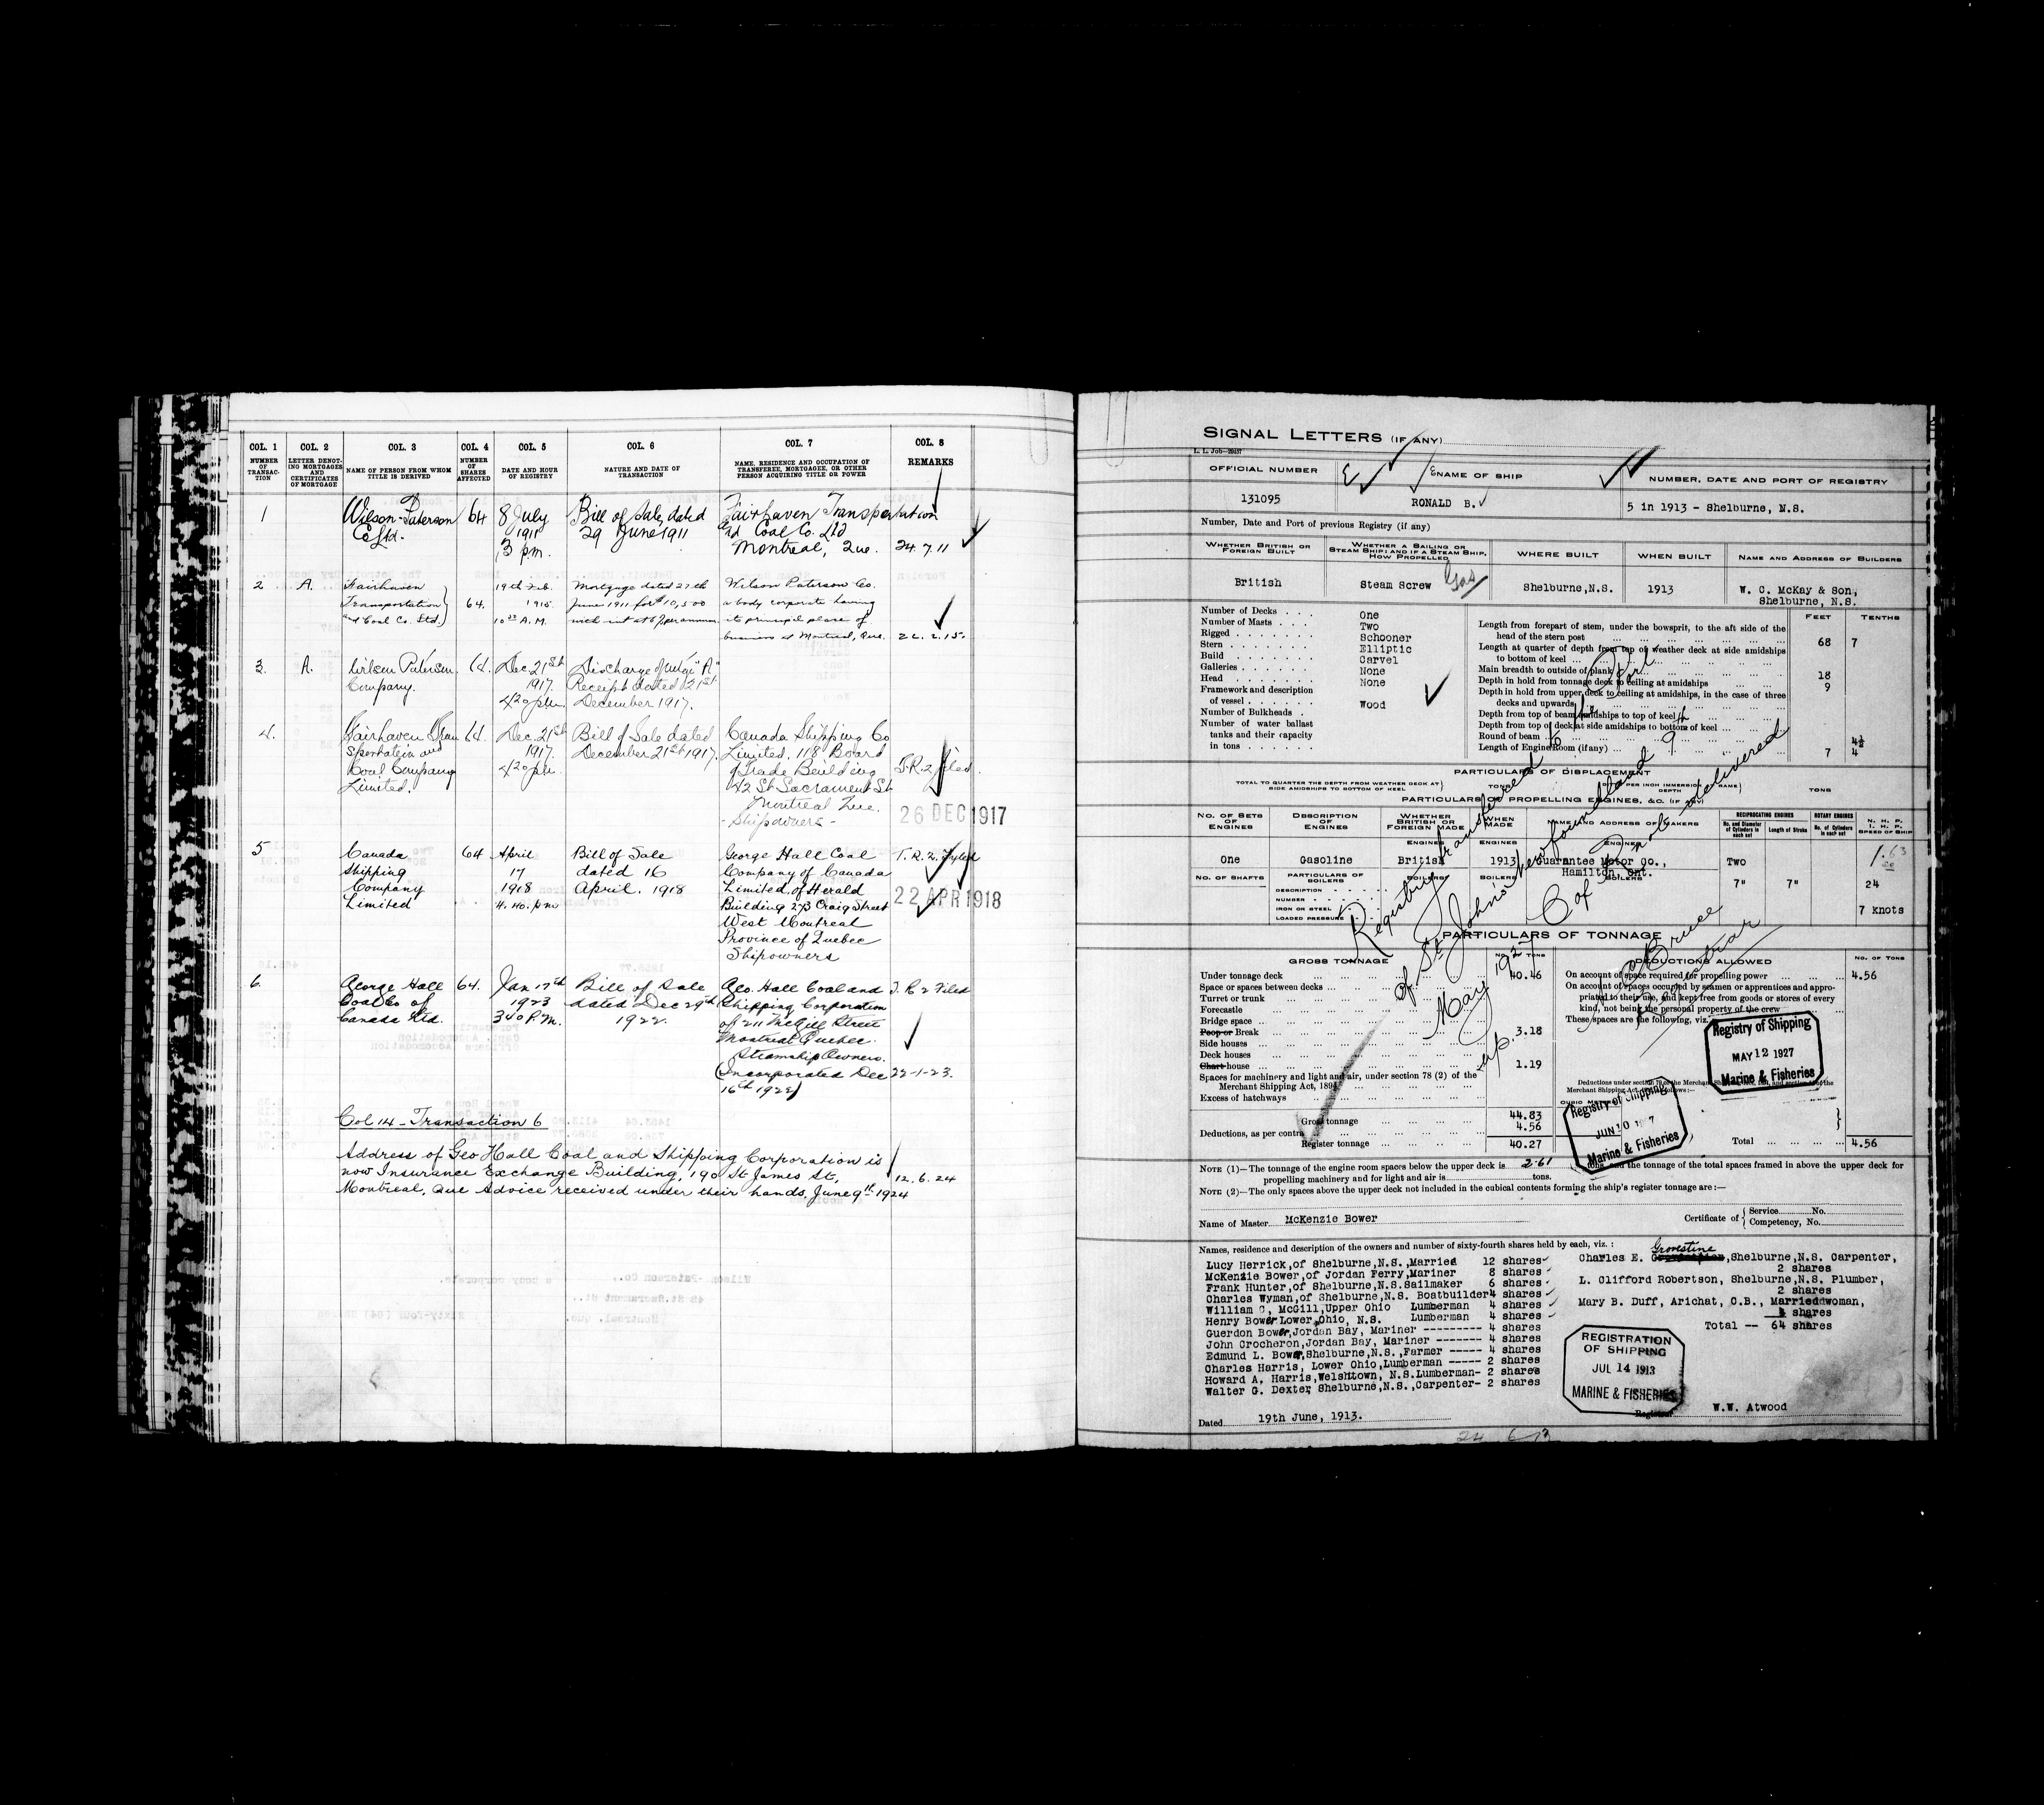 COL. 1 COL. 2 COL. 3 COL. 4 COL. 5 COL. 6 COL. 7 COL. 8
NUMBER OF TRANSAC-TION
LETTER DENOT-ING MORTGAGES AND CERTIFICATES OF MORTGAGE
NAME OF PERSON FROM WHOM TITLE IS DERIVED
NUMBER OF SHARES AFFECTED
DATE AND HOUR OF REGISTRY
NATURE AND DATE OF TRANSACTION
NAME, RESIDENCE AND OCCUPATION OF TRANSFEREE, MORTGAGEE, OR OTHER PERSON ACQUIRING TITLE OR POWER
REMARKS
1 Wilson-Paterson 64 8 July Bill of Sale, dated Fairhaven Transportation
Co Ltd. 1911 29 June 1911 and Coal Co. Ltd
3 p.m. Montreal, Que. 24.7.11
2 A. Fairhaven 19th Feb. Mortgage dated 27th Wilson Paterson Co.
Transportation 64. 1915 June 1911 for $10,500 a body corporate having
and Coal Co. Ltd. A.M. with int at 6 per annum. its principal place of
business at Montreal, Que. 22.2.15.
3. A. Wilson Paterson 64. Dec. 21st Discharge of Mtge "A"
Company. 1917. Receipt dated 21st
4.20 pm. December 1917.
4. Fairhaven Tran 64. Dec. 21st Bill of Sale dated Canada Shipping Co
sportation and 1917. December 21st 1917. Limited. 118 Board
Coal Company 4.20 pm. of Trade Building T.R.2 filed.
Limited. 42 St Sacrament St
Montreal Que.
- Shipowners - 26 DEC 1917
5 Canada 64 April Bill of Sale George Hall Coal T.R.2. Fyled
Shipping 17 dated 16 Company of Canada
Company 1918 April. 1918 Limited. of Herald 22 APR 1918
Limited 4.40. pm Building 273 Craig Street
West Montreal
Province of Quebec
Shipowners
6. George Hall 64. Jan 17th Bill of Sale Geo. Hall Coal and T.R 2 Filed
Coal Co of 1923 dated Dec 29th Shipping Corporation
Canada Ltd. 3.40 P.M. 1922. of 211 McGill Street
Montreal Quebec.
Steamship Owners.
(Incorporated Dec 22-1-23.
16th 1922)
Col 14 - Transaction 6
Address of Geo Hall Coal and Shipping Corporation is
now Insurance Exchange Building, 190 St James St, 12.6.24
Montreal, Que Advice received under their hands, June 9th 1924
SIGNAL LETTERS (IF ANY)
L. L. Job—20457
OFFICIAL NUMBER NAME OF SHIP NUMBER, DATE AND PORT OF REGISTRY
131095 RONALD B. 5 in 1913 - Shelburne, N.S.
Number, Date and Port of previous Registry (if any)
WHETHER BRITISH OR FOREIGN BUILT
WHETHER A SAILING OR STEAM SHIP; AND IF A STEAM SHIP, HOW PROPELLED
WHERE BUILT WHEN BUILT NAME AND ADDRESS OF BUILDERS
British Steam Screw Gas Shelburne, N.S. 1913 W. C. McKay & Son,
Shelburne, N.S.
Number of Decks One
Number of Masts Two
Rigged Schooner
Stern Elliptic
Build Carvel
Galleries None
Head None
Framework and description of vessel Wood
Number of Bulkheads
Number of water ballast tanks and their capacity in tons
FEET TENTHS
Length from forepart of stem, under the bowsprit, to the aft side of the head of the stern post 68 7
Length at quarter of depth from top of weather deck at side amidships to bottom of keel
Main breadth to outside of plank 18
Depth in hold from tonnage deck to ceiling at amidships 9
Depth in hold from upper deck to ceiling at amidships, in the case of three decks and upwards
Depth from top of beam amidships to top of keel
Depth from top of deck at side amidships to bottom of keel
Round of beam 4½
Length of Engine Room (if any) 7 4
PARTICULARS OF DISPLACEMENT
TOTAL TO QUARTER THE DEPTH FROM WEATHER DECK AT SIDE AMIDSHIPS TO BOTTOM OF KEEL TONS PER INCH IMMERSION TONS
PARTICULARS OF PROPELLING ENGINES, &C. (IF ANY)
NO. OF SETS OF ENGINES
DESCRIPTION OF ENGINES
WHETHER BRITISH OR FOREIGN MADE
WHEN MADE
NAME AND ADDRESS OF MAKERS
RECIPROCATING ENGINES ROTARY ENGINES
No. and Diameter of Cylinders in each set Length of Stroke No. of Cylinders in each set
N. H. P. I. H. P. SPEED OF SHIP
ENGINES ENGINES ENGINES
One Gasoline British 1913 Guarantee Motor Co., Two 1.63
Hamilton, Ont.
NO. OF SHAFTS PARTICULARS OF BOILERS BOILERS BOILERS BOILERS
7" 7" 24
DESCRIPTION
NUMBER
IRON OR STEEL
LOADED PRESSURE
7 Knots
Registry transferred to the Port
of St. John's Newfoundland 9th
May 1927 C of R not delivered
Bruce
Registrar
PARTICULARS OF TONNAGE
GROSS TONNAGE NO. OF TONS DEDUCTIONS ALLOWED NO. OF TONS
Under tonnage deck 40.46
Space or spaces between decks
Turret or trunk
Forecastle
Bridge space
Poop or Break 3.18
Side houses
Deck houses
Chart house 1.19
Spaces for machinery and light and air, under section 78 (2) of the Merchant Shipping Act, 1894
Excess of hatchways
Gross tonnage 44.83
Deductions, as per contra 4.56
Register tonnage 40.27
On account of space required for propelling power 4.56
On account of spaces occupied by seamen or apprentices and appro-
priated to their use, and kept free from goods or stores of every
kind, not being the personal property of the crew
These spaces are the following, viz.
Registry of Shipping
MAY 12 1927
Marine & Fisheries
Registry of Shipping
JUN 10 1927
Marine & Fisheries
Total 4.56
NOTE (1)—The tonnage of the engine room spaces below the upper deck is 2.61 tons, and the tonnage of the total spaces framed in above the upper deck for
propelling machinery and for light and air is tons.
NOTE (2)—The only spaces above the upper deck not included in the cubical contents forming the ship's register tonnage are:—
Name of Master McKenzie Bower
Certificate of Service No.
Competency, No.
Names, residence and description of the owners and number of sixty-fourth shares held by each, viz. :
Lucy Herrick, of Shelburne, N.S., Married 12 shares
McKenzie Bower, of Jordan Ferry, Mariner 8 shares
Frank Hunter, of Shelburne, N.S. Sailmaker 6 shares
Charles Wyman, of Shelburne, N.S. Boatbuilder 4 shares
William C, McGill, Upper Ohio Lumberman 4 shares
Henry Bower Lower Ohio, N.S. Lumberman 4 shares
Guerdon Bower, Jordan Bay, Mariner ---------- 4 shares
John Crocheron, Jordan Bay, Mariner ------- 4 shares
Edmund L. Bower, Shelburne, N.S., Farmer ----- 4 shares
Charles Harris, Lower Ohio, Lumberman ----- 2 shares
Howard A. Harris, Welshtown, N.S. Lumberman- 2 shares
Walter G. Dexter, Shelburne, N.S., Carpenter- 2 shares
Grovestine
Charles E. , Shelburne, N.S. Carpenter,
2 shares
L. Clifford Robertson, Shelburne, N.S. Plumber,
2 shares
Mary B. Duff, Arichat, C.B., Marriedwoman,
shares
Total -- 64 shares
REGISTRATION
OF SHIPPING
JUL 14 1913
MARINE & FISHERIES
Dated 19th June, 1913.
Registrar W.W. Atwood
24 6 13